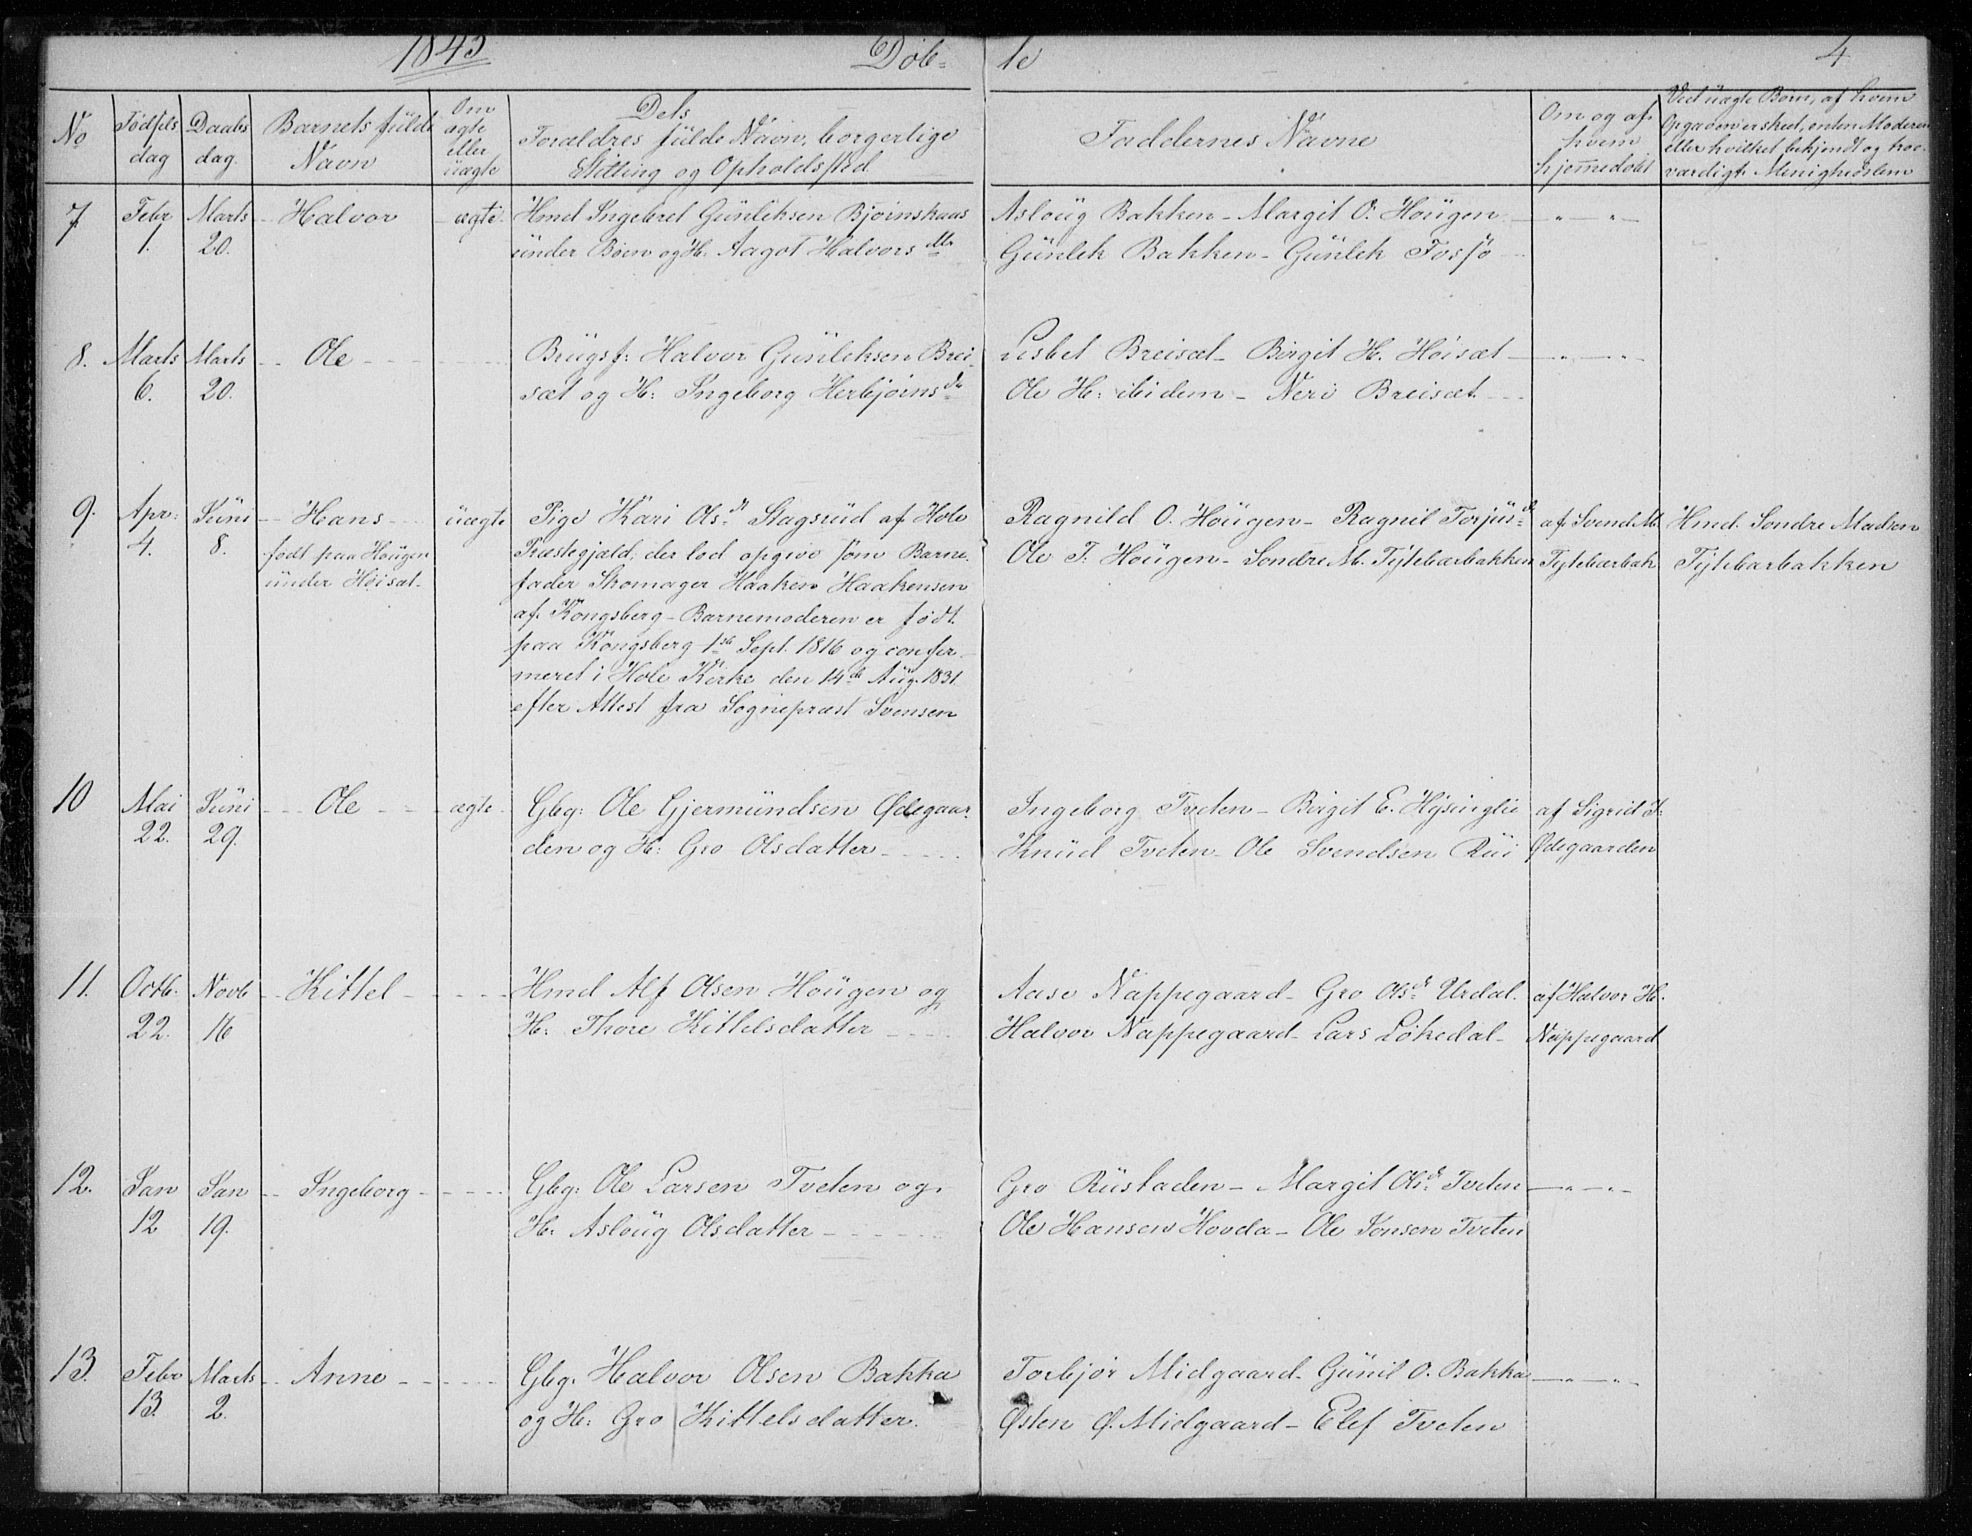 1845 Døb= te 4
No Fødsels dag Daabs dag. Barnets fulde Navn Om ægte eller uægte Dets Forældres fulde Navn, borgerlige Stilling og Opholdssted Faddernes Navne Om og af hvem hjemmedøbt Ved uægte Børn, af hvem Opgaven er skeet, enten Moderen eller hvilket bekjendt og troværdigt Menighedslem
7. Febr Marts Halvor ægte Hmd Ingebret Gunleksen Bjørnskaas Asloug Bakken - Margit O. Hougen - „ - „ -
1. 20. under Bøen og H. Aagot Halvorsdtr Gunlek Bakken - Gunlek Fossø
8. Marts Marts Ole Brugsf: Halvor Gunleksen Brei- Lisbet Breisæt - Birgit H. Høisæt - „ - „ -
6. 20. sæt og H: Ingeborg Herbjørnsdr Ole H: ibidem - Neri Breisæt
9. Apr: Juni Hans uægte Pige Kari Olsdr Stagsrud af Hole Ragnild O. Hougen - Ragnil Torjusdr af Svend M. Hmd. Sondre Madsen
4. 8. født paa Hougen Præstegjæld, der lod opgive som Barne- Ole T. Hougen - Sondre M. Tÿtebærbakken Tÿtebærbak Tÿtebærbakken
under Høisæt. fader Skomager Haaken Haakensen
af Kongsberg - Barnemoderen er født
paa Kongsberg 1ste Sept. 1816 og confir-
meret i Hole Kirke den 14de Aug. 1831
efter Attest fra Sognepræst Svensen
10 Mai Juni Ole ægte Gbg: Ole Gjermundsen Ødegaar- Ingeborg Tveten - Birgit E. Hÿsinglie af Sigrid T:
22. 29. den og H: Gro Olsdatter Knud Tveten - Ole Svendsen Rui Ødegaarden
11. Octb. Novb Kittel Hmd Alf Olsen Hougen og Aase Nappegaard - Gro Olsdr Urdal. af Halvor H.
22. 16 H: Thore Kittelsdatter Halvor Nappegaard - Lars Løkedal - Nappegaard
12. Jan Jan Ingeborg Gbg: Ole Larsen Tveten og Gro Rustaden - Margit Olsdr Tveten - „ - „ -
12 19. H: Asloug Olsdatter Ole Hansen Hovda - Ole Jonsen Tveten
13. Febr Marts Anne Gbg. Halvor Olsen Bakka Torbjør Midgaard - Gunil O. Bakka - „ - „ -
13. 2. og H: Gro Kittelsdatter. Østen Ø. Midgaard - Elef Tveten